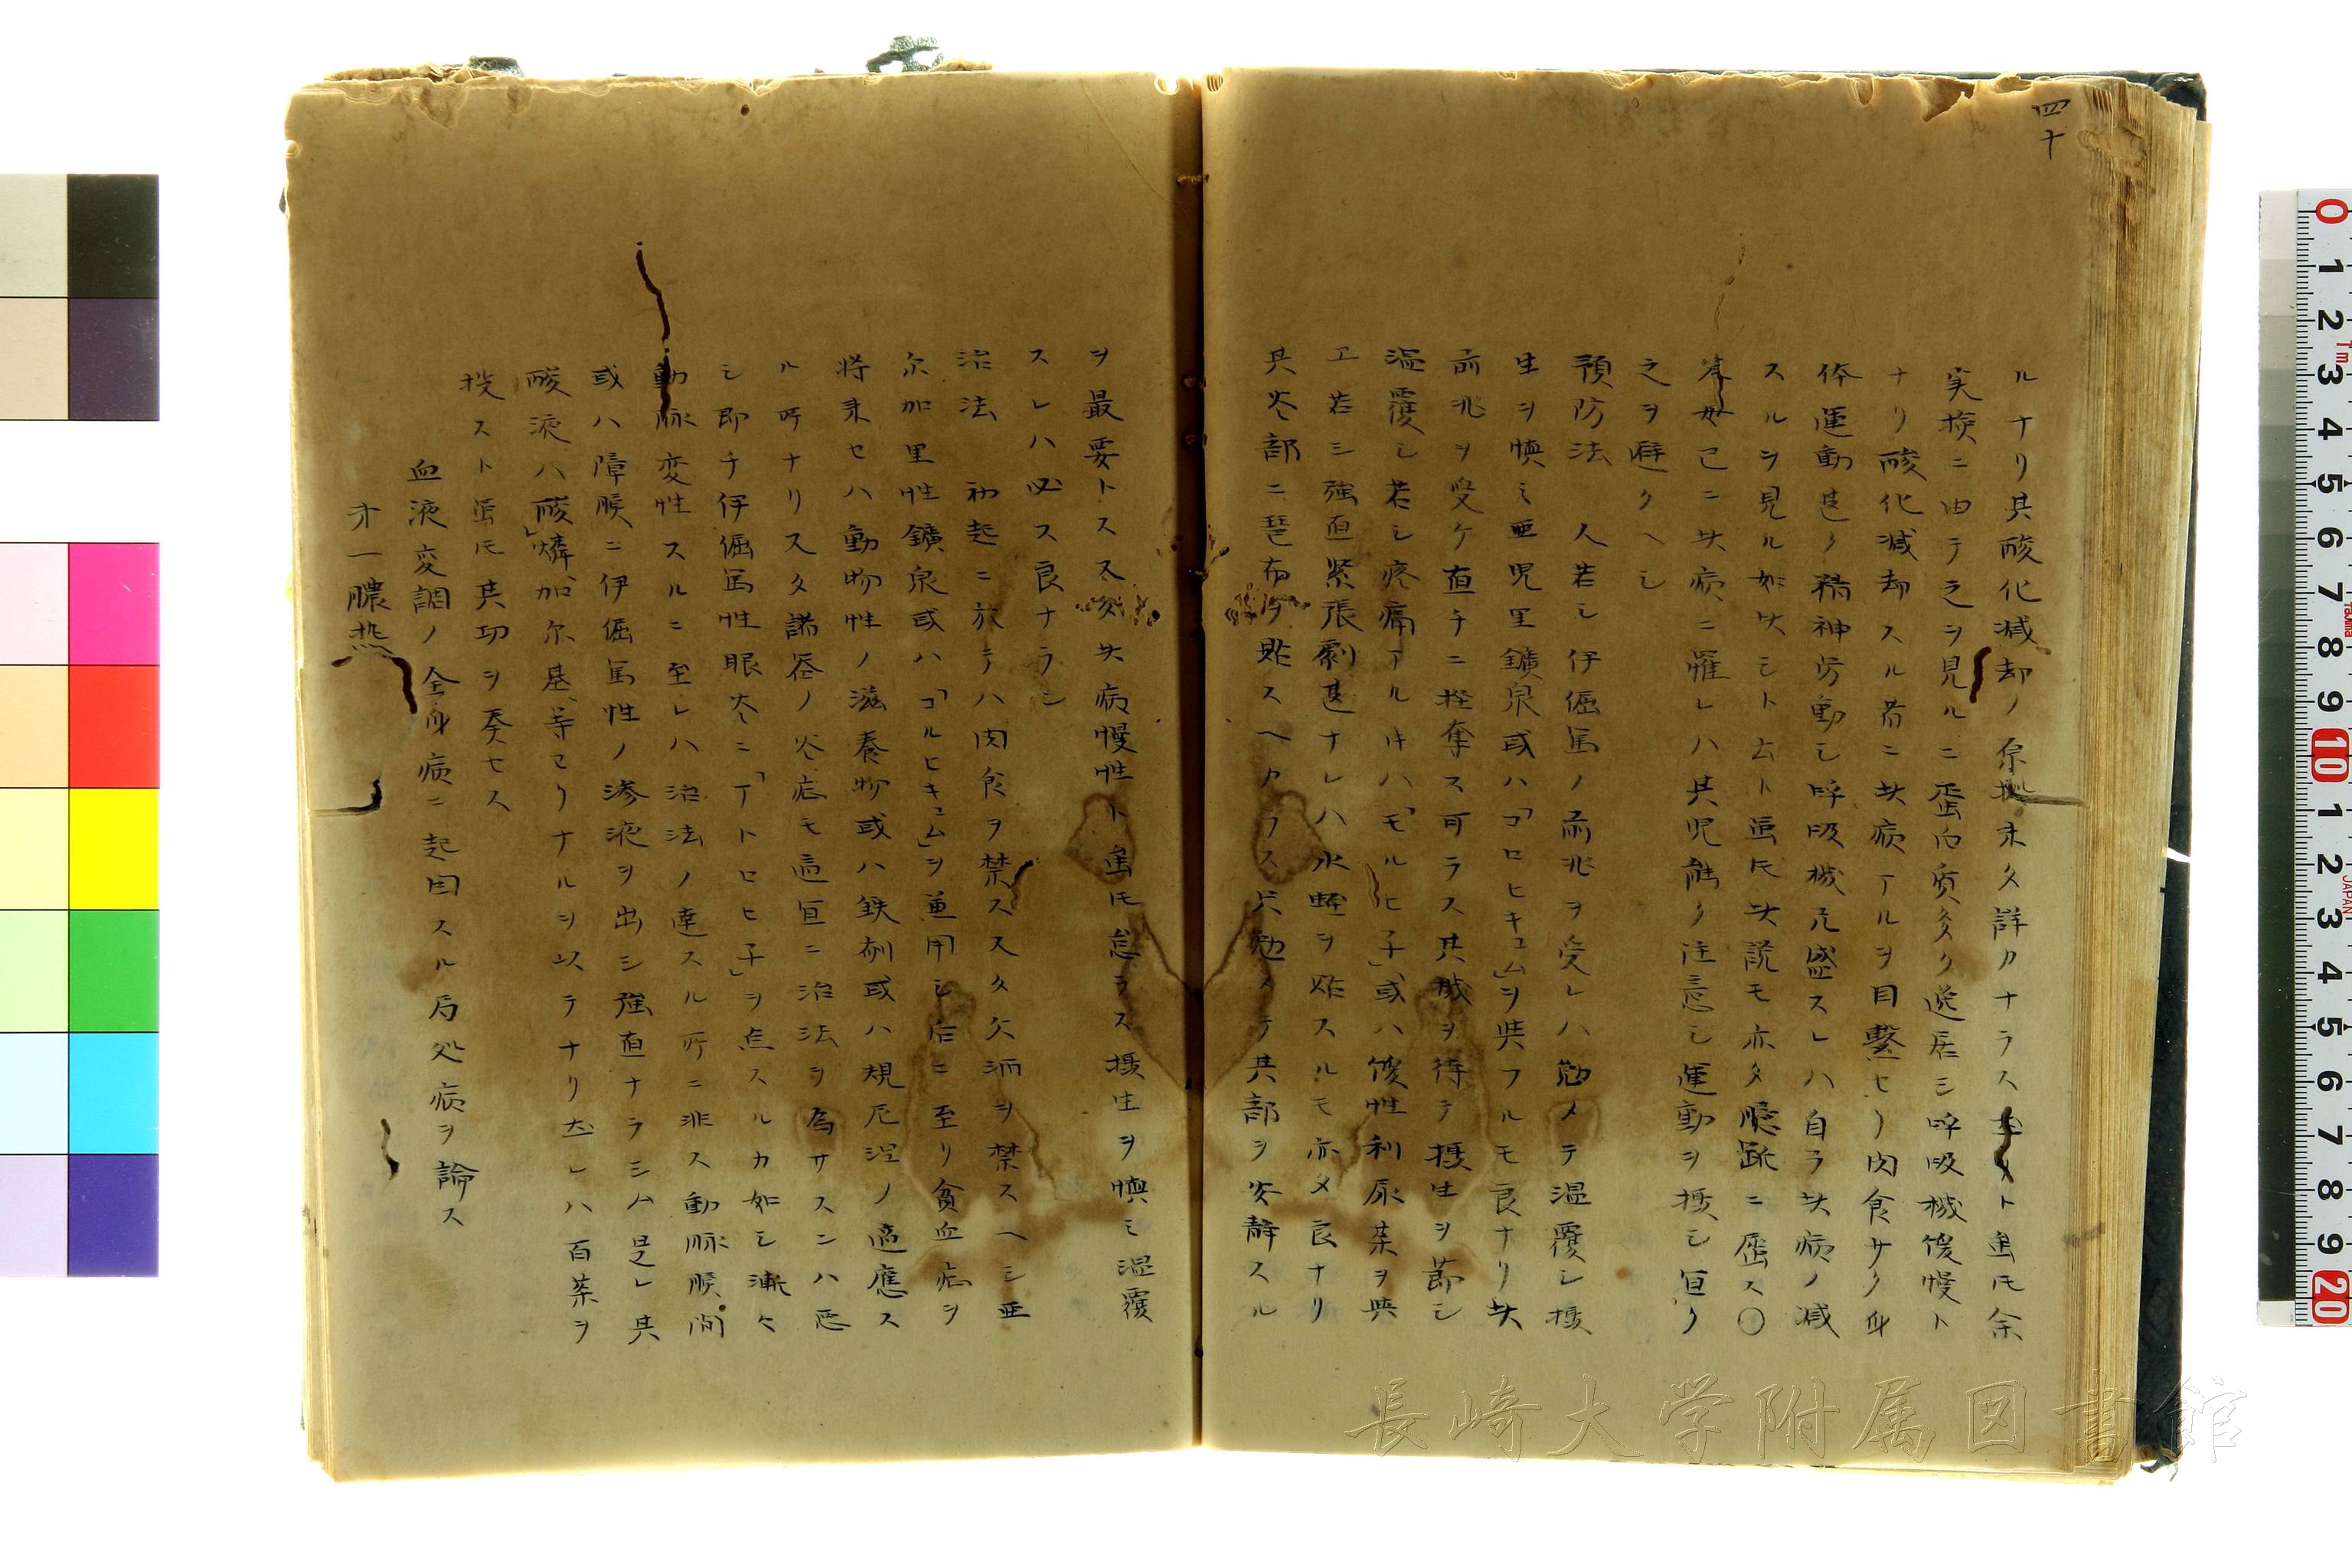 四十
ルナリ其酸化減却ノ原機未タ詳カナラス ト虽𪜈余
実検ニ由テ之ヲ見ルニ蛋白質多ク逆居シ呼吸機慢ト
ナリ酸化減却スル者ニ此病アルヲ目撃セリ肉食サク身
体運動甚タ精神労動シ呼吸機亢盛スレハ自ラ此病ノ減
スルヲ見ル如此シト云ト虽𪜈此説モ亦タ臆 ニ屈ス〇
父母已ニ此病ニ罹レハ其児能ク注意シ運動ヲ摂シ宜ク
之ヲ避クヘシ
預防法 人若シ伊倔篤ノ前兆ヲ受レハ勉メテ温覆シ摂
生ヲ慎ミ亜児里鑛泉或ハ「コロヒキュム」ヲ與フルモ良ナリ此
前兆ヲ受ケ直チニ挫奪ス可ラス其機ヲ待テ摂生ヲ節シ
温覆シ若シ疼痛アル𪜈ハ「モルヒ子」或ハ慢性利尿薬ヲ與
エ若シ強直緊張劇甚ナレハ水蛭ヲ貼スルモ亦タ良ナリ
其炎部ニ琶布ヲ貼スヘカラス只勉メテ其部ヲ安静スル
ヲ最要トス又 此病慢性ト虽𪜈怠ラス摂生ヲ慎ミ温覆
スレハ必ス良ナラン
治法 初起ニ於テハ肉食ヲ禁ス又タ欠洒ヲ禁スヘシ亜
尓加里性鑛泉或ハ「コルヒキュム」ヲ兼用シ后ニ至リ貧血症ヲ
将来セハ動物性ノ滋養物或ハ鉄剤或ハ規尼涅ノ適應ス
ル所ナリ又タ諸器ノ炎症モ適宜ニ治法ヲ為サスンハ悪
シ即チ伊倔篤性眼炎ニ「アトロヒ子」ヲ点スルカ如シ漸々
動脉変性スルニ至レハ治法ノ達スル所ニ非ス動脉膜間
或ハ障膜ニ伊倔篤性ノ滲液ヲ出シ強直ナラシム是レ其
酸液ハ「酸」燐加尓基等ヨリナルヲ以テナリ故レハ百薬ヲ
投スト虽𪜈其功ヲ奏セス
血液変調ノ全身病ニ起因スル局処病ヲ論ス
才一膿熱
長崎大学附属図書館